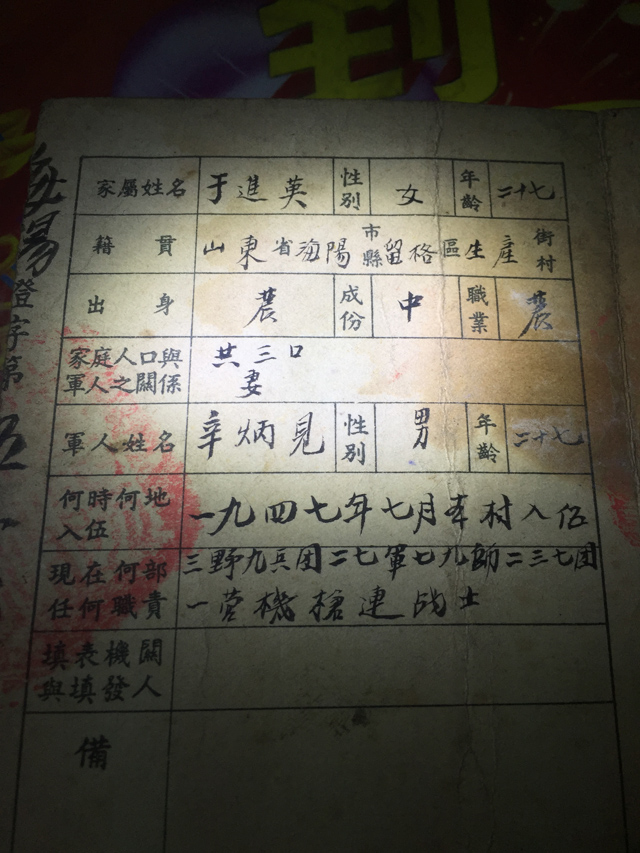 到
海陽
證字第
伍
家屬姓名 于進英 性別 女 年齡 二十七
籍貫 山東省海陽市縣留格區生產街村
出身 農 成份 中 職業 農
家庭人口與軍人之關係 共三口
妻
軍人姓名 辛炳見 性別 男 年齡 二十七
何時何地入伍 一九四七年七月本村入伍
現在何部任何職責 三野九兵团二七軍七九師二三七团
一营機槍連战士
填表機關與填發人
備